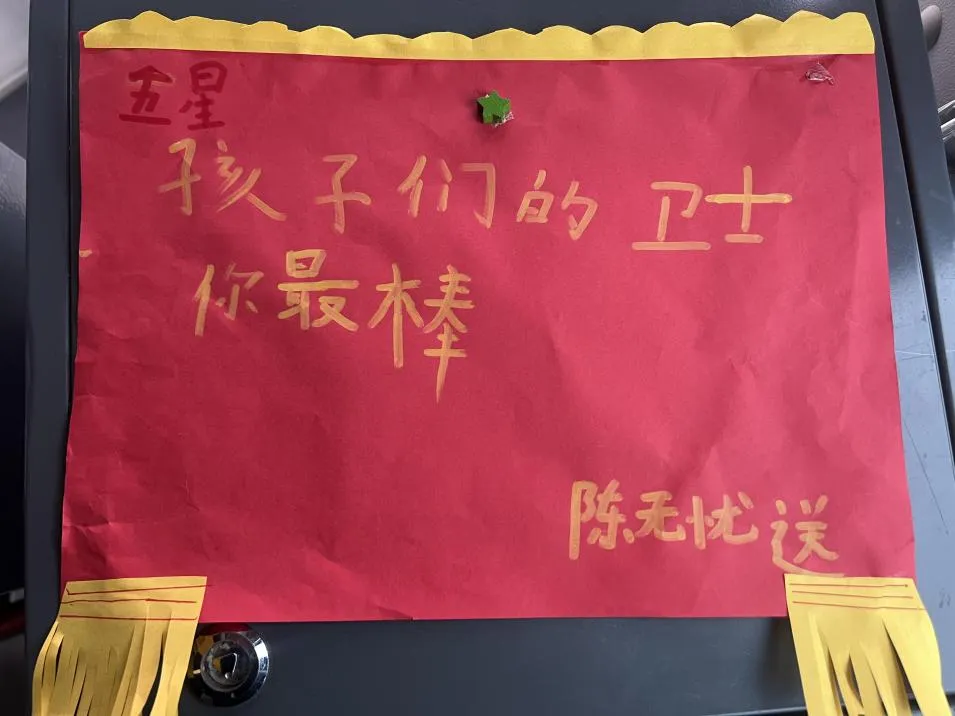 五星
孩子们的卫士
你最棒
陈无忧送